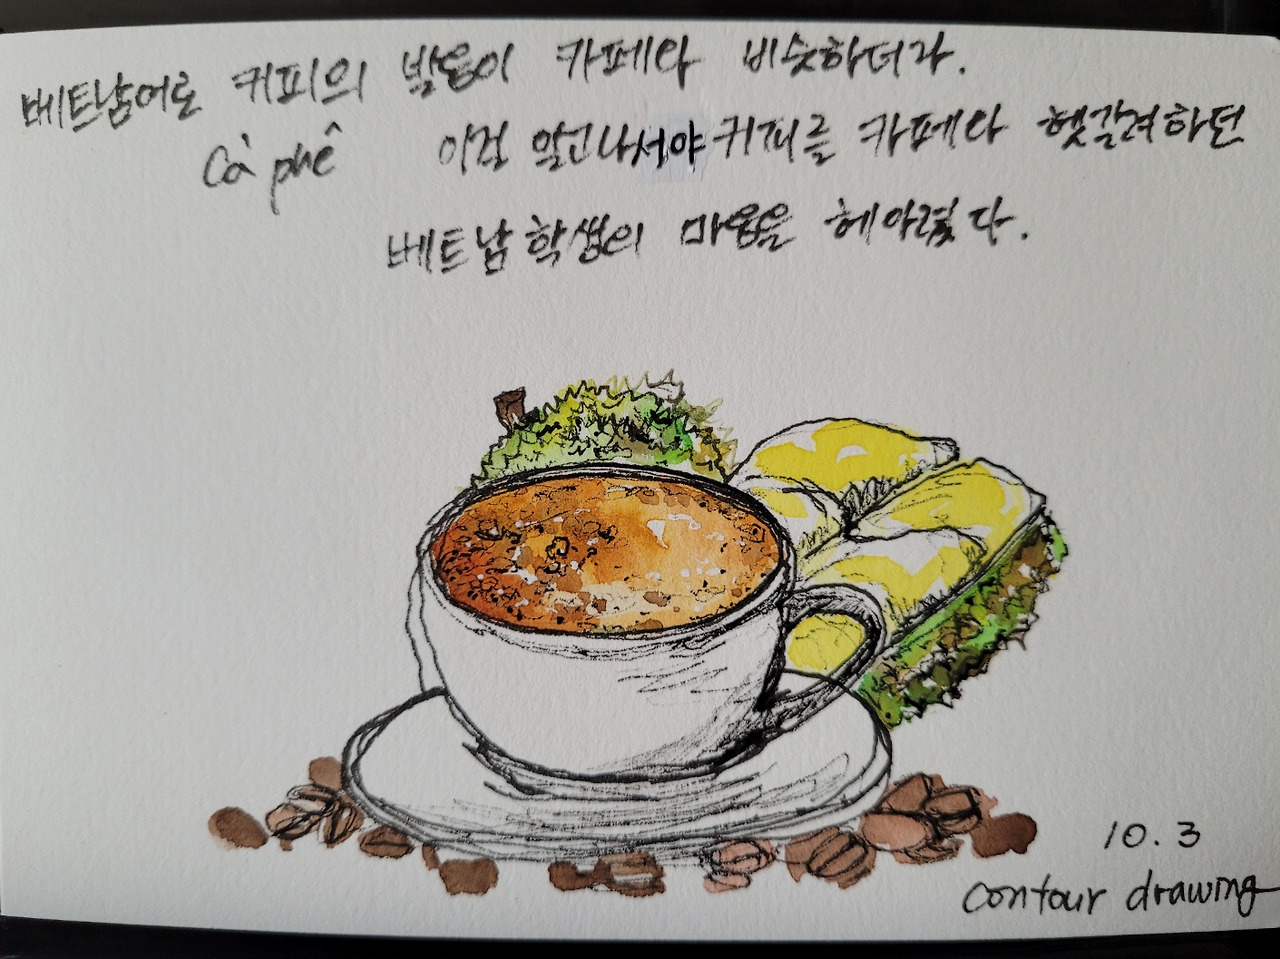 베트남어로 커피의 발음이 카페와 비슷하더라.
Cà phê 이걸 알고나서야 커피를 카페와 헷갈려하던
베트남 학생의 마음을 헤아렸다.
10.3
contour drawing